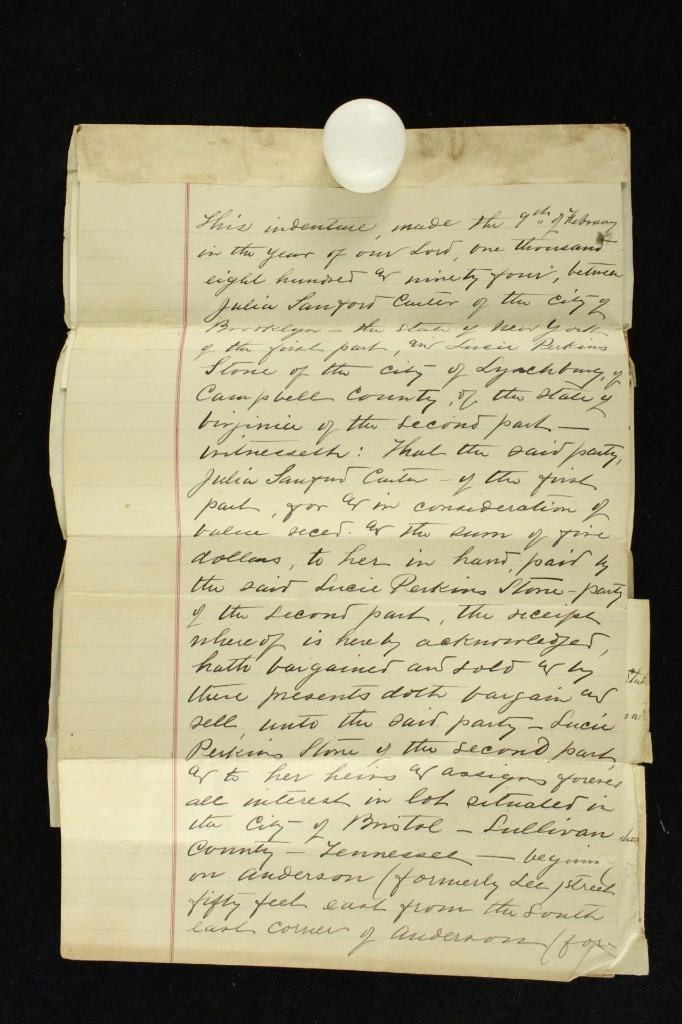 This indenture, made the 9th of February
in the year of our Lord, one thousand
eight hundred & ninety four, between
Julia Sanford Carter of the city of
Brooklyn – the state of New York
of the first part, and Lucie Perkins
Stone of the city of Lynchburg, of
Campbell County, of the state of
Virginia of the second part —
witnesseth: That the said party,
Julia Sanford Carter – of the first
part, for & in consideration of
value reced. & the sum of five
dollars, to her in hand, paid by
the said Lucie Perkins Stone – party
of the second part, the receipt
whereof is hereby acknowledged,
hath bargained and sold & by
these presents doth bargain and
sell, unto the said party – Lucie
Perkins Stone of the second part,
& to her heirs & assigns forever
all interest in lot situated in
the City – of Bristol – Sullivan
County – Tennessee — begining
on Anderson (formerly Lee) street
fifty feet east from the South
east corner of Anderson (for-